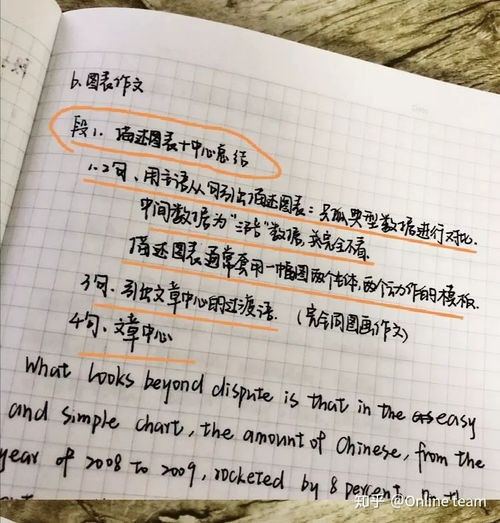 b.图表作文
段1.描述图表+中心总结
1-2句、用主语从句引出描述图表:只抓典型数据进行对比.
中间数据为"泛善"数据,并完全不看.
描述图表通常套用一幅图两个主体,两个动作的模板.
3句.引出文章中心的过渡语. (完全同图画作文)
4句、文章中心
What looks beyond dispute is that in the easy
and simple chart, the amount of Chinese, from the
year of 2008 to 2009, rocketed by 8 percent
知乎 @Online team